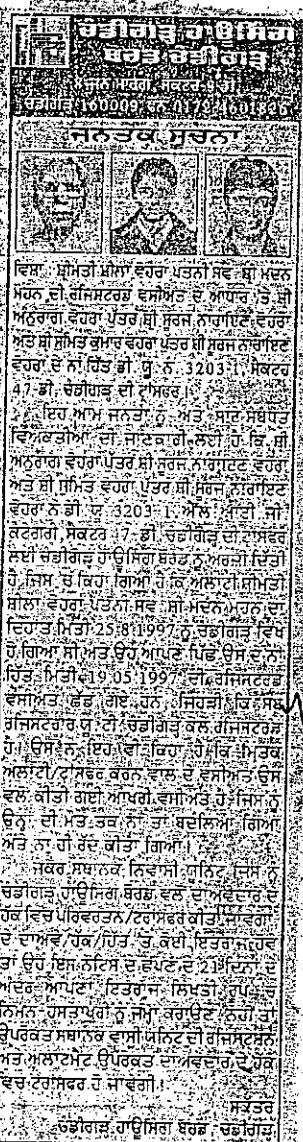 ਚੰਡੀਗੜ੍ਹ ਹਾਊਸਿੰਗ
ਬੋਰਡ ਚੰਡੀਗੜ੍ਹ
ਜਨ ਮਾਰਗ, ਸੈਕਟਰ 9-ਡੀ
ਚੰਡੀਗੜ੍ਹ 160009, ਫੋਨ 0172-4601826
ਜਨਤਕ ਸੂਚਨਾ
ਵਿਸ਼ਾ : ਸ੍ਰੀਮਤੀ ਸ਼ੀਲਾ ਵੋਹਰਾ ਪਤਨੀ ਸਵ. ਸ੍ਰੀ ਮਦਨ
ਮੋਹਨ ਦੀ ਰਜਿਸਟਰਡ ਵਸੀਅਤ ਦੇ ਆਧਾਰ 'ਤੇ ਸ਼੍ਰੀ
ਅਨੁਰਾਗ ਵੋਹਰਾ ਪੁੱਤਰ ਸ਼੍ਰੀ ਸੂਰਜ ਨਾਰਾਇਣ ਵੋਹਰਾ
ਅਤੇ ਸ਼੍ਰੀ ਸੁਮਿਤ ਕੁਮਾਰ ਵੋਹਰਾ ਪੁੱਤਰ ਸ਼੍ਰੀ ਸੂਰਜ ਨਾਰਾਇਣ
ਵੋਹਰਾ ਦੇ ਨਾਂ ਹਿੱਤ ਡੀ. ਯੂ. ਨੰ. 3203-1, ਸੈਕਟਰ
47-ਡੀ, ਚੰਡੀਗੜ੍ਹ ਦੀ ਟ੍ਰਾਂਸਫਰ।
ਇਹ ਆਮ ਜਨਤਾ ਨੂੰ ਅਤੇ ਸਾਰੇ ਸਬੰਧਤ
ਵਿਅਕਤੀਆਂ ਦੀ ਜਾਣਕਾਰੀ ਲਈ ਹੈ ਕਿ ਸ਼੍ਰੀ
ਅਨੁਰਾਗ ਵੋਹਰਾ ਪੁੱਤਰ ਸ਼੍ਰੀ ਸੂਰਜ ਨਾਰਾਇਣ ਵੋਹਰਾ
ਅਤੇ ਸ਼੍ਰੀ ਸੁਮਿਤ ਵੋਹਰਾ ਪੁੱਤਰ ਸ਼੍ਰੀ ਸੂਰਜ ਨਾਰਾਇਣ
ਵੋਹਰਾ ਨੇ ਡੀ. ਯੂ. 3203-1, ਐੱਲ. ਆਈ. ਜੀ.
ਕੈਟਾਗਰੀ, ਸੈਕਟਰ 47-ਡੀ, ਚੰਡੀਗੜ੍ਹ ਦੀ ਟ੍ਰਾਂਸਫਰ
ਲਈ ਚੰਡੀਗੜ੍ਹ ਹਾਊਸਿੰਗ ਬੋਰਡ ਨੂੰ ਅਰਜ਼ੀ ਦਿੱਤੀ
ਹੈ, ਜਿਸ 'ਚ ਕਿਹਾ ਗਿਆ ਹੈ ਕਿ ਅਲਾਟੀ ਸ਼੍ਰੀਮਤੀ
ਸ਼ੀਲਾ ਵੋਹਰਾ ਪਤਨੀ ਸਵ. ਸ਼੍ਰੀ ਮਦਨ ਮੋਹਨ ਦਾ
ਦਿਹਾਂਤ ਮਿਤੀ 25.8.1997 ਨੂੰ ਚੰਡੀਗੜ੍ਹ ਵਿਖੇ
ਹੋ ਗਿਆ ਸੀ ਅਤੇ ਉਹ ਆਪਣੇ ਪਿੱਛੇ ਉਸ ਦੇ ਨਾਂ
ਹਿੱਤ ਮਿਤੀ 19.05.1997 ਦੀ ਰਜਿਸਟਰਡ
ਵਸੀਅਤ ਛੱਡ ਗਏ ਹਨ, ਜਿਹੜੀ ਕਿ ਸਬ
ਰਜਿਸਟਰਾਰ ਯੂ. ਟੀ. ਚੰਡੀਗੜ੍ਹ ਕੋਲ ਰਜਿਸਟਰਡ
ਹੈ। ਉਸ ਨੇ ਇਹ ਵੀ ਕਿਹਾ ਹੈ ਕਿ ਮ੍ਰਿਤਕ
ਅਲਾਟੀ/ਟ੍ਰਾਂਸਫਰ ਕਰਨ ਵਾਲੇ ਦੇ ਵਸੀਅਤ ਉਸ
ਵੱਲੋਂ ਕੀਤੀ ਗਈ ਆਖਰੀ ਵਸੀਅਤ ਹੈ, ਜਿਸ ਨੂੰ
ਉਨ੍ਹਾਂ ਦੀ ਮੌਤ ਤੱਕ ਨਾ ਤਾਂ ਬਦਲਿਆ ਗਿਆ
ਅਤੇ ਨਾ ਹੀ ਰੱਦ ਕੀਤਾ ਗਿਆ।
ਜੇਕਰ ਸਥਾਨਕ ਨਿਵਾਸੀ ਯੂਨਿਟ ਜਿਸ ਨੂੰ
ਚੰਡੀਗੜ੍ਹ ਹਾਊਸਿੰਗ ਬੋਰਡ ਵੱਲੋਂ ਦਾਅਵੇਦਾਰ ਦੇ
ਹੱਕ ਵਿਚ ਪਰਿਵਰਤਨ/ਟਰਾਂਸਫਰ ਕੀਤਾ ਜਾਵੇਗਾ
ਦੇ ਦਾਅਵੇ/ਹੱਕ/ਹਿੱਤ 'ਤੇ ਕੋਈ ਇਤਰਾਜ਼ ਹੋਵੇ
ਤਾਂ ਉਹ ਇਸ ਨੋਟਿਸ ਦੇ ਛਪਣ ਦੇ 21 ਦਿਨਾਂ ਦੇ
ਅੰਦਰ ਆਪਣਾ ਇਤਰਾਜ਼ ਲਿਖਤੀ ਰੂਪ 'ਚ
ਨਿਮਨ ਹਸਤਾਖਰੀ ਨੂੰ ਜਮ੍ਹਾ ਕਰਾਉਣ ਨਹੀਂ ਤਾਂ
ਉਪਰੋਕਤ ਸਥਾਨਕ ਵਾਸੀ ਯੂਨਿਟ ਦੀ ਰਜਿਸਟ੍ਰੇਸ਼ਨ
ਅਤੇ ਅਲਾਟਮੈਂਟ ਉਪਰੋਕਤ ਦਾਅਵੇਦਾਰ ਦੇ ਹੱਕ
ਵਿਚ ਟਰਾਂਸਫਰ ਹੋ ਜਾਵੇਗੀ।
ਸਕੱਤਰ
ਚੰਡੀਗੜ੍ਹ ਹਾਊਸਿੰਗ ਬੋਰਡ, ਚੰਡੀਗੜ੍ਹ